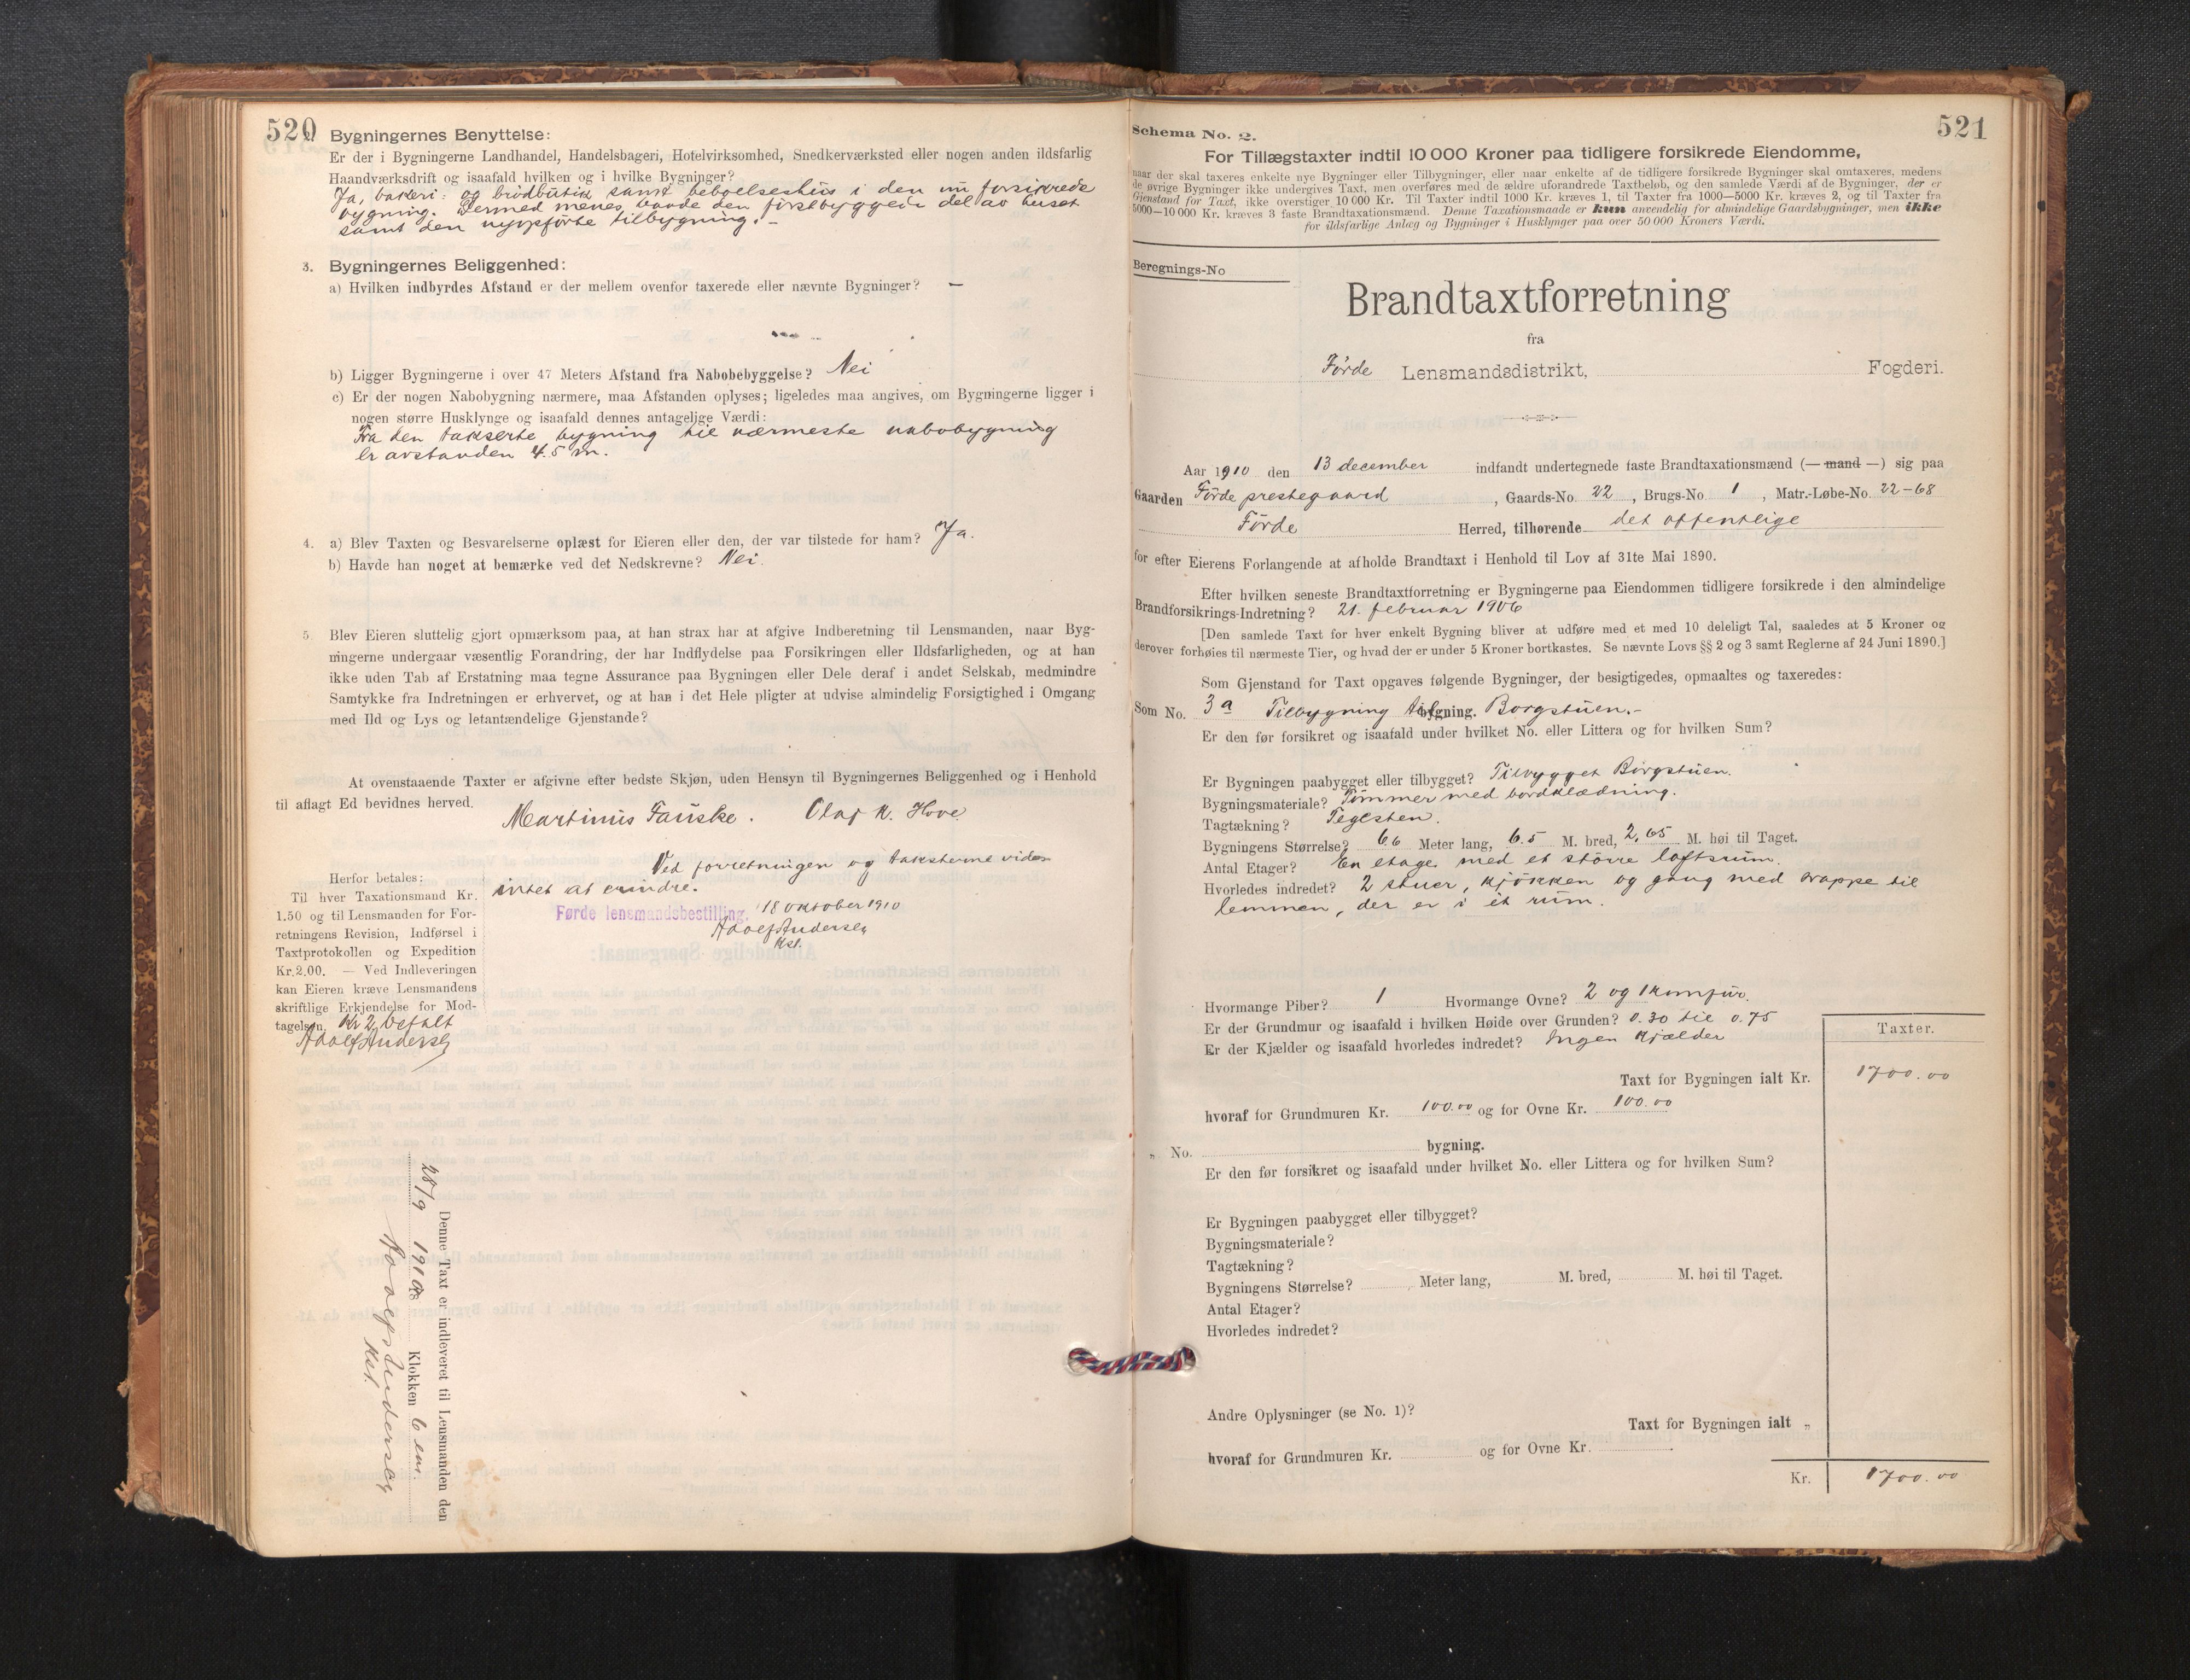 520
2. Bygningernes Benyttelse:
Er der i Bygningerne Landhandel, Handelsbageri, Hotelvirksomhed, Snedkerværksted eller nogen anden ildsfarlig
Haandværksdrift og isaafald hvilken og i hvilke Bygninger?
Ja, bakeri: og brödbutik samt beboelseshus i den nu forsikrede
bygning. Dermed menes baade den först byggede del av huset
samt den nyopførte tilbygning. –
3. Bygningernes Beliggenhed:
a) Hvilken indbyrdes Afstand er der mellem ovenfor taxerede eller nævnte Bygninger? —
b) Ligger Bygningerne i over 47 Meters Afstand fra Nabobebyggelse? Nei
c) Er der nogen Nabobygning nærmere, maa Afstanden oplyses; ligeledes maa angives, om Bygningerne ligger i
nogen større Husklynge og isaafald dennes antagelige Værdi:
Fra den takserte bygning til nærmeste nabobygning
er avstanden 4.5 m.
4. a) Blev Taxten og Besvarelserne oplæst for Eieren eller den, der var tilstede for ham? Ja.
b) Havde han noget at bemærke ved det Nedskrevne? Nei.
5. Blev Eieren sluttelig gjort opmærksom paa, at han strax har at afgive Indberetning til Lensmanden, naar Byg-
ningerne undergaar væsentlig Forandring, der har Indflydelse paa Forsikringen eller Ildsfarligheden, og at han
ikke uden Tab af Erstatning maa tegne Assurance paa Bygningen eller Dele deraf i andet Selskab, medmindre
Samtykke fra Indretningen er erhvervet, og at han i det Hele pligter at udvise almindelig Forsigtighed i Omgang
med Ild og Lys og letantændelige Gjenstande?
At ovenstaaende Taxter er afgivne efter bedste Skjøn, uden Hensyn til Bygningernes Beliggenhed og i Henhold
til aflagt Ed bevidnes herved.
Martinus Fauske. Olaf K. Hove
Ved forretningen og taksterne vides
intet at erindre.
Førde lensmandsbestilling, 18 oktober 1910
Adolf Andersen
Kst.
Herfor betales:
Til hver Taxationsmand Kr.
1.50 og til Lensmanden for For-
retningens Revision, Indførsel i
Taxtprotokollen og Expedition
Kr. 2.00. — Ved Indleveringen
kan Eieren kræve Lensmandens
skriftlige Erkjendelse for Mod-
tagelsen. Kr 2 betalt
Adolf Andersen
Denne Taxt er indleveret til Lensmanden den
28/9 1910 Klokken 6 em.
Adolf Andersen
Kst.
521
Schema No. 2.
For Tillægstaxter indtil 10 000 Kroner paa tidligere forsikrede Eiendomme,
naar der skal taxeres enkelte nye Bygninger eller Tilbygninger, eller naar enkelte af de tidligere forsikrede Bygninger skal omtaxeres, medens
de øvrige Bygninger ikke undergives Taxt, men overføres med de ældre uforandrede Taxtbeløb, og den samlede Værdi af de Bygninger, der er
Gjenstand for Taxt, ikke overstiger 10 000 Kr. Til Taxter indtil 1000 Kr. kræves 1, til Taxter fra 1000—5000 Kr. kræves 2, og til Taxter fra
5000—10 000 Kr. kræves 3 faste Brandtaxationsmænd. Denne Taxationsmaade er kun anvendelig for almindelige Gaardsbygninger, men ikke
for ildsfarlige Anlæg og Bygninger i Husklynger paa over 50 000 Kroners Værdi.
Beregnings-No
Brandtaxtforretning
fra
Förde Lensmandsdistrikt, Fogderi.
Aar 1910 den 13 december indfandt undertegnede faste Brandtaxationsmænd (— mand —) sig paa
Gaarden Förde prestegaard, Gaards-No. 22, Brugs-No. 1, Matr.-Løbe-No. 22–68
Förde Herred, tilhørende det offentlige
for efter Eierens Forlangende at afholde Brandtaxt i Henhold til Lov af 31te Mai 1890.
Efter hvilken seneste Brandtaxtforretning er Bygningerne paa Eiendommen tidligere forsikrede i den almindelige
Brandforsikrings-Indretning? 21. februar 1906
[Den samlede Taxt for hver enkelt Bygning bliver at udføre med et med 10 deleligt Tal, saaledes at 5 Kroner og
derover forhøies til nærmeste Tier, og hvad der er under 5 Kroner bortkastes. Se nævnte Lovs §§ 2 og 3 samt Reglerne af 24 Juni 1890.]
Som Gjenstand for Taxt opgaves følgende Bygninger, der besigtigedes, opmaaltes og taxeredes:
Som No. 3a Tilbygning til bygning. Borgstuen. –
Er den før forsikret og isaafald under hvilket No. eller Littera og for hvilken Sum?
Er Bygningen paabygget eller tilbygget? Tilbygget Borgstuen.
Bygningsmateriale? Tömmer med bordklædning.
Tagtækning? Teglsten.
Bygningens Størrelse? 6.6 Meter lang, 6.5 M. bred, 2.65 M. høi til Taget.
Antal Etager? En etage med et större loftsrum.
Hvorledes indredet? 2 stuer, kjökken og gang med trappe til
lemmen, der er i et rum.
Hvormange Piber? 1 Hvormange Ovne? 2 og 1 komfur.
Er der Grundmur og isaafald i hvilken Høide over Grunden? 0.30 til 0.75
Er der Kjælder og isaafald hvorledes indredet? Ingen kjælder
Taxter.
Taxt for Bygningen ialt Kr. 1700.00
hvoraf for Grundmuren Kr. 100.00 og for Ovne Kr. 100.00
„ No. bygning.
Er den før forsikret og isaafald under hvilket No. eller Littera og for hvilken Sum?
Er Bygningen paabygget eller tilbygget?
Bygningsmateriale?
Tagtækning?
Bygningens Størrelse? Meter lang, M. bred, M. høi til Taget.
Antal Etager?
Hvorledes indredet?
Andre Oplysninger (se No. 1)?
Taxt for Bygningen ialt „
hvoraf for Grundmuren Kr. og for Ovne Kr.
Kr. 1700.00